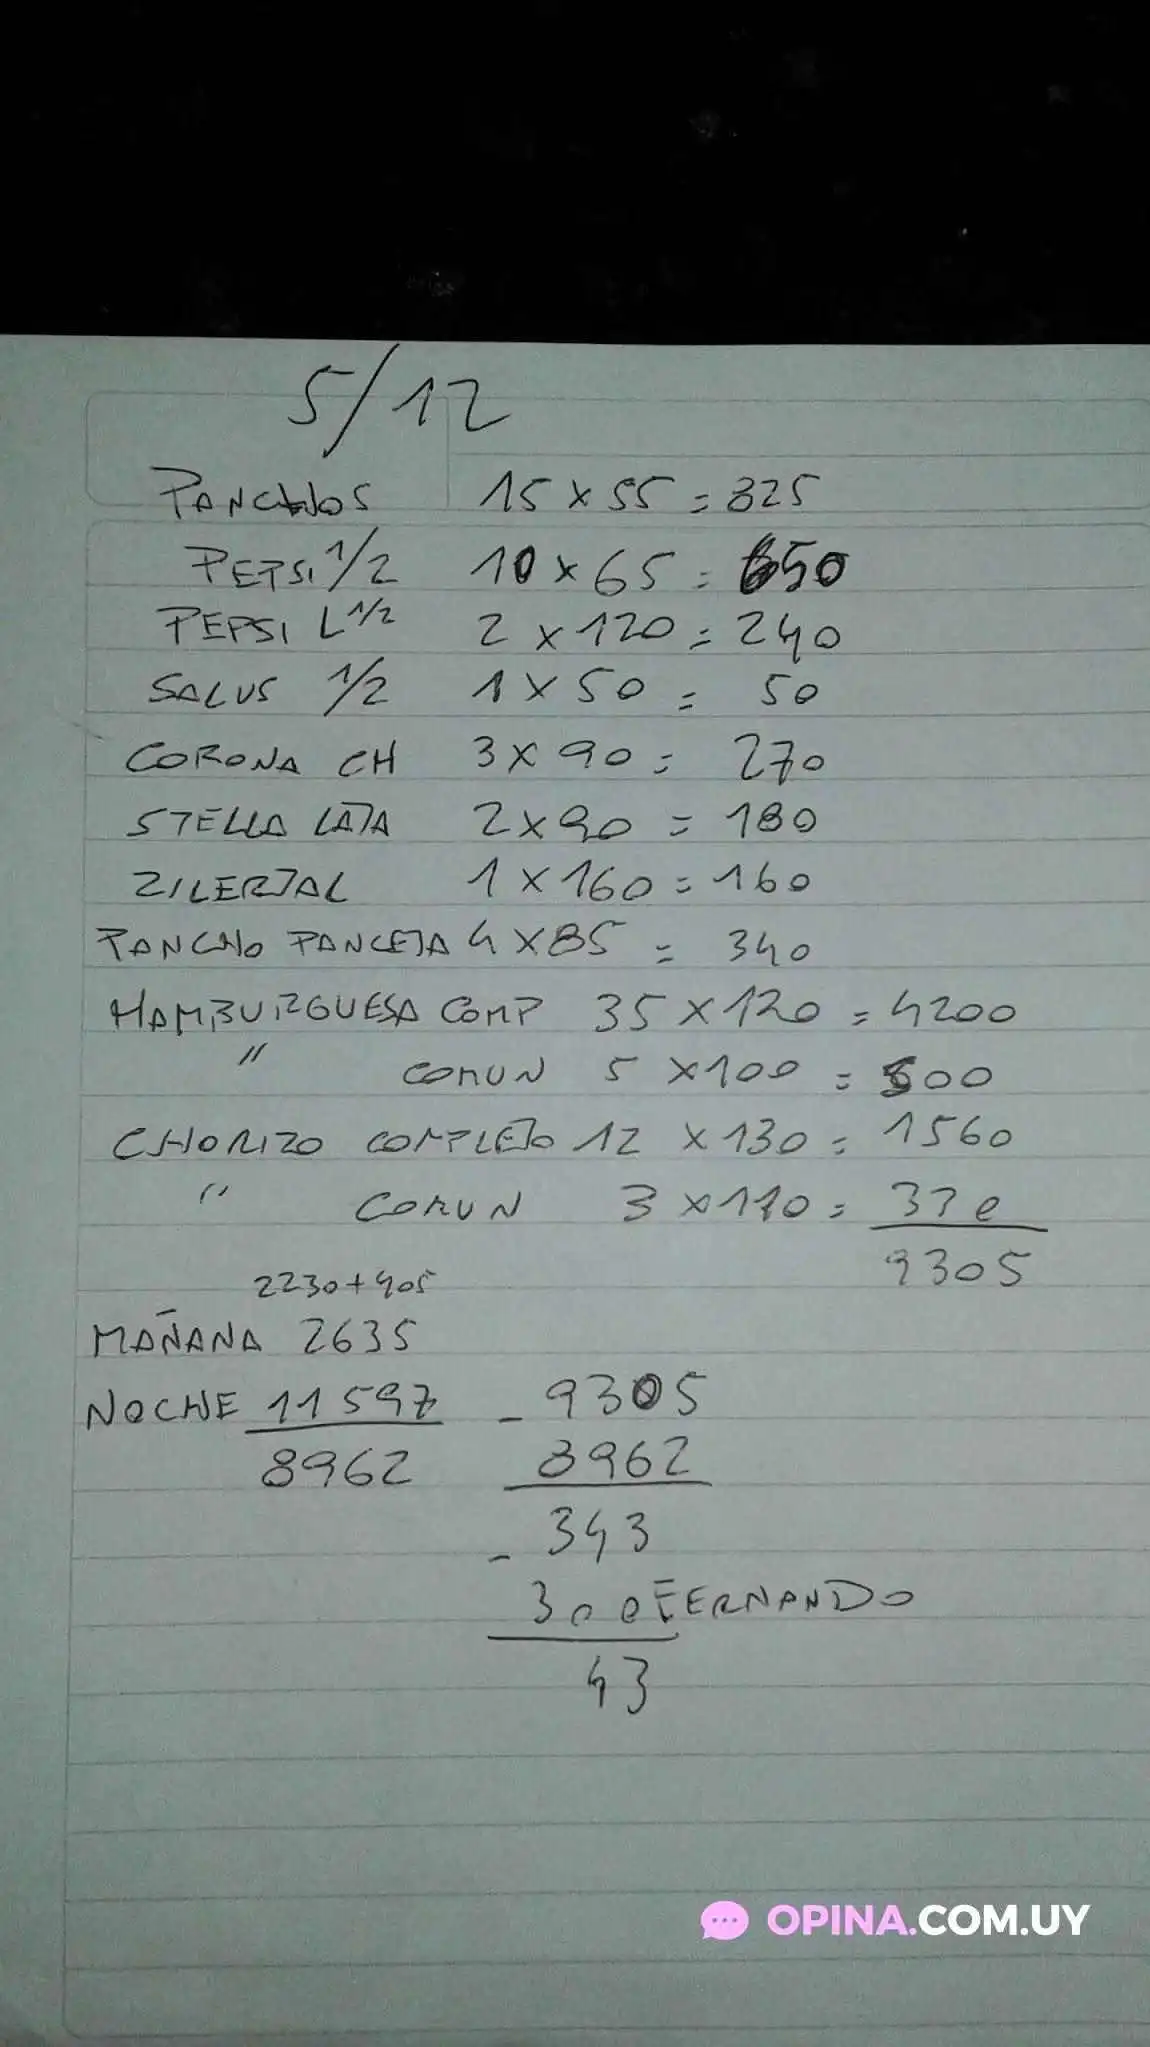 5/12
PANCHOS 15 x 55 = 825
PEPSI 1/2 10 x 65 = 650
PEPSI L 1/2 2 x 120 = 240
SALUS 1/2 1 x 50 = 50
CORONA CH 3 x 90 = 270
STELLA LATA 2 x 90 = 180
ZILERTAL 1 x 160 = 160
PANCHO PANCETA 4 x 85 = 340
HAMBURGUESA COMP 35 x 120 = 4200
" COMUN 5 x 100 = 500
CHORIZO COMPLETO 12 x 130 = 1560
" COMUN 3 x 110 = 330
9305
2230 + 405
MAÑANA 2635
NOCHE 11597
8962
- 9305
8962
343
- 300 FERNANDO
43
OPINA.COM.UY